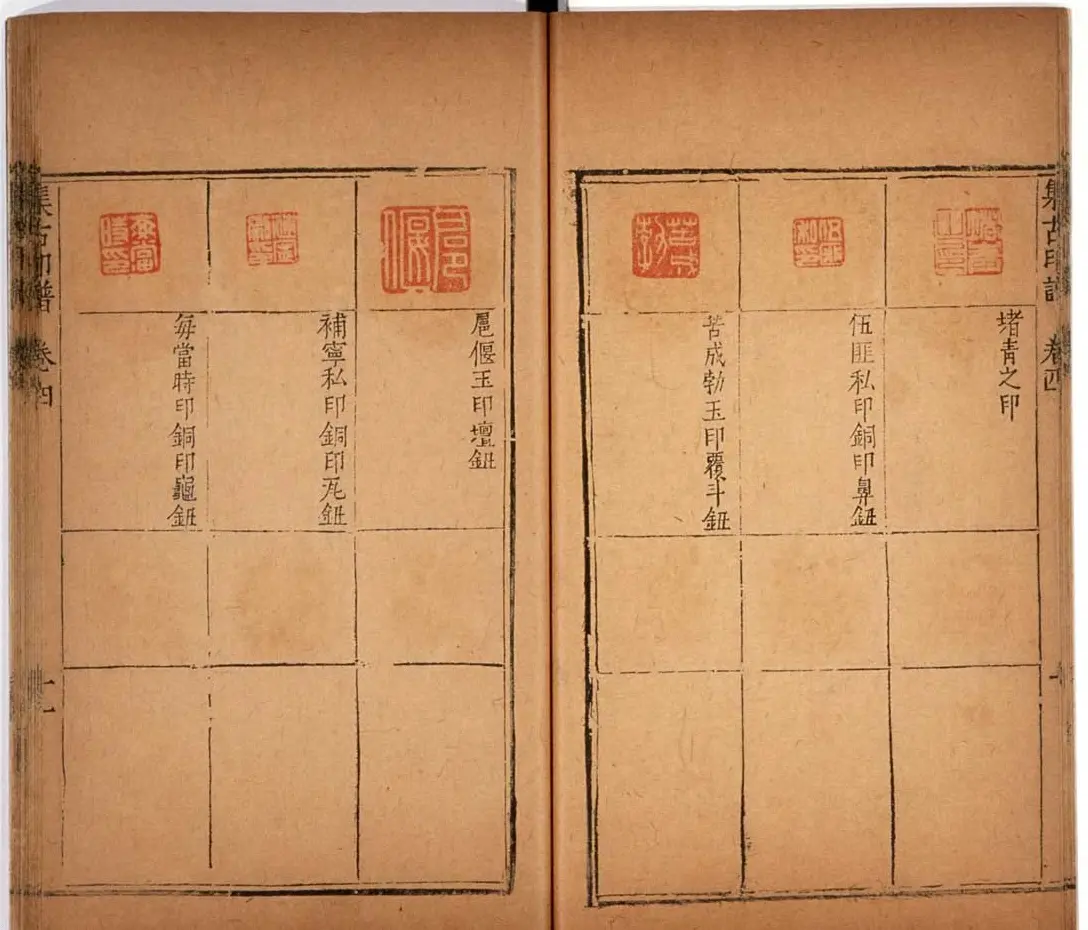 集古印譜 卷四
堵青之印
伍匪私印銅印鼻鈕
苦成勃玉印覆斗鈕
扈偃玉印壇鈕
補寧私印銅印瓦鈕
每當時印銅印龜鈕
集古印譜 卷四 十一